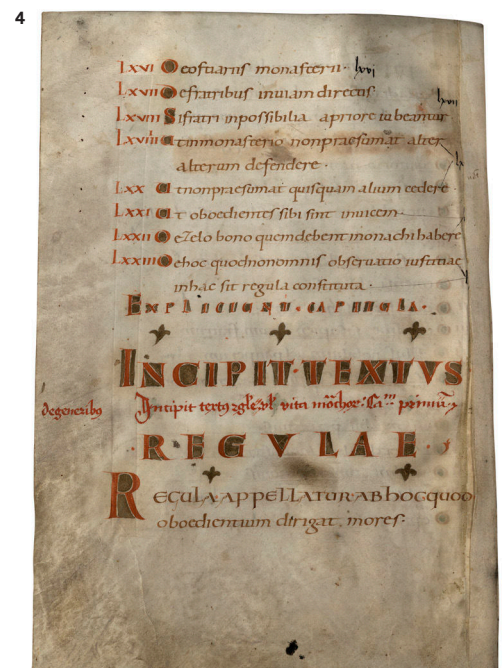 4
LXVI De ostiariis monasterii · lxvi
LXVII De fratribus in viam directis
lxvii
LXVIII Si fratri inpossibilia a priore iubeantur
LXVIIII Ut in monasterio non praesumat alter
alterum defendere ·
LXX Ut non praesumat quisquam alium cedere ·
LXXI Ut oboedientes sibi sint invicem ·
LXXII De zelo bono quem debent monachi habere
LXXIII De hoc quod non omnis observatio iustitiae
in hac sit regula constituta ·
EXPLICIUNT · CAPITULA ·
INCIPIT · TEXTUS
de generibus Incipit vita primum
REGULAE ·
REGULA · APPELLATUR · AB HOC QUOD
oboedientium dirigat mores ·